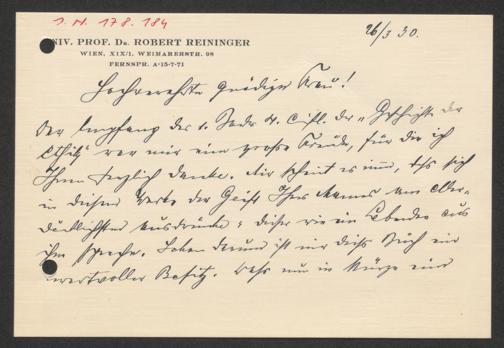 I. N. 178.184
26/3 30.
UNIV. PROF. DR. ROBERT REININGER
WIEN, XIX/1, WEIMARERSTR. 98
FERNSPR. A-15-7-71
Hochverehrte gnädige Frau!
Der Empfang des 1. der „Geschichte der
Ethik" war mir eine große Freude, für die ich
Ihnen herzlich danke. Mir scheint es immer, daß sich
in diesem Werke der Geist Ihres Mannes am aller-
deutlichsten ausdrücke, wie ein Lebender aus
ihm spreche. Schon darum ist mir dieses Buch ein
wertvoller Besitz. Daß nun in Kürze eine